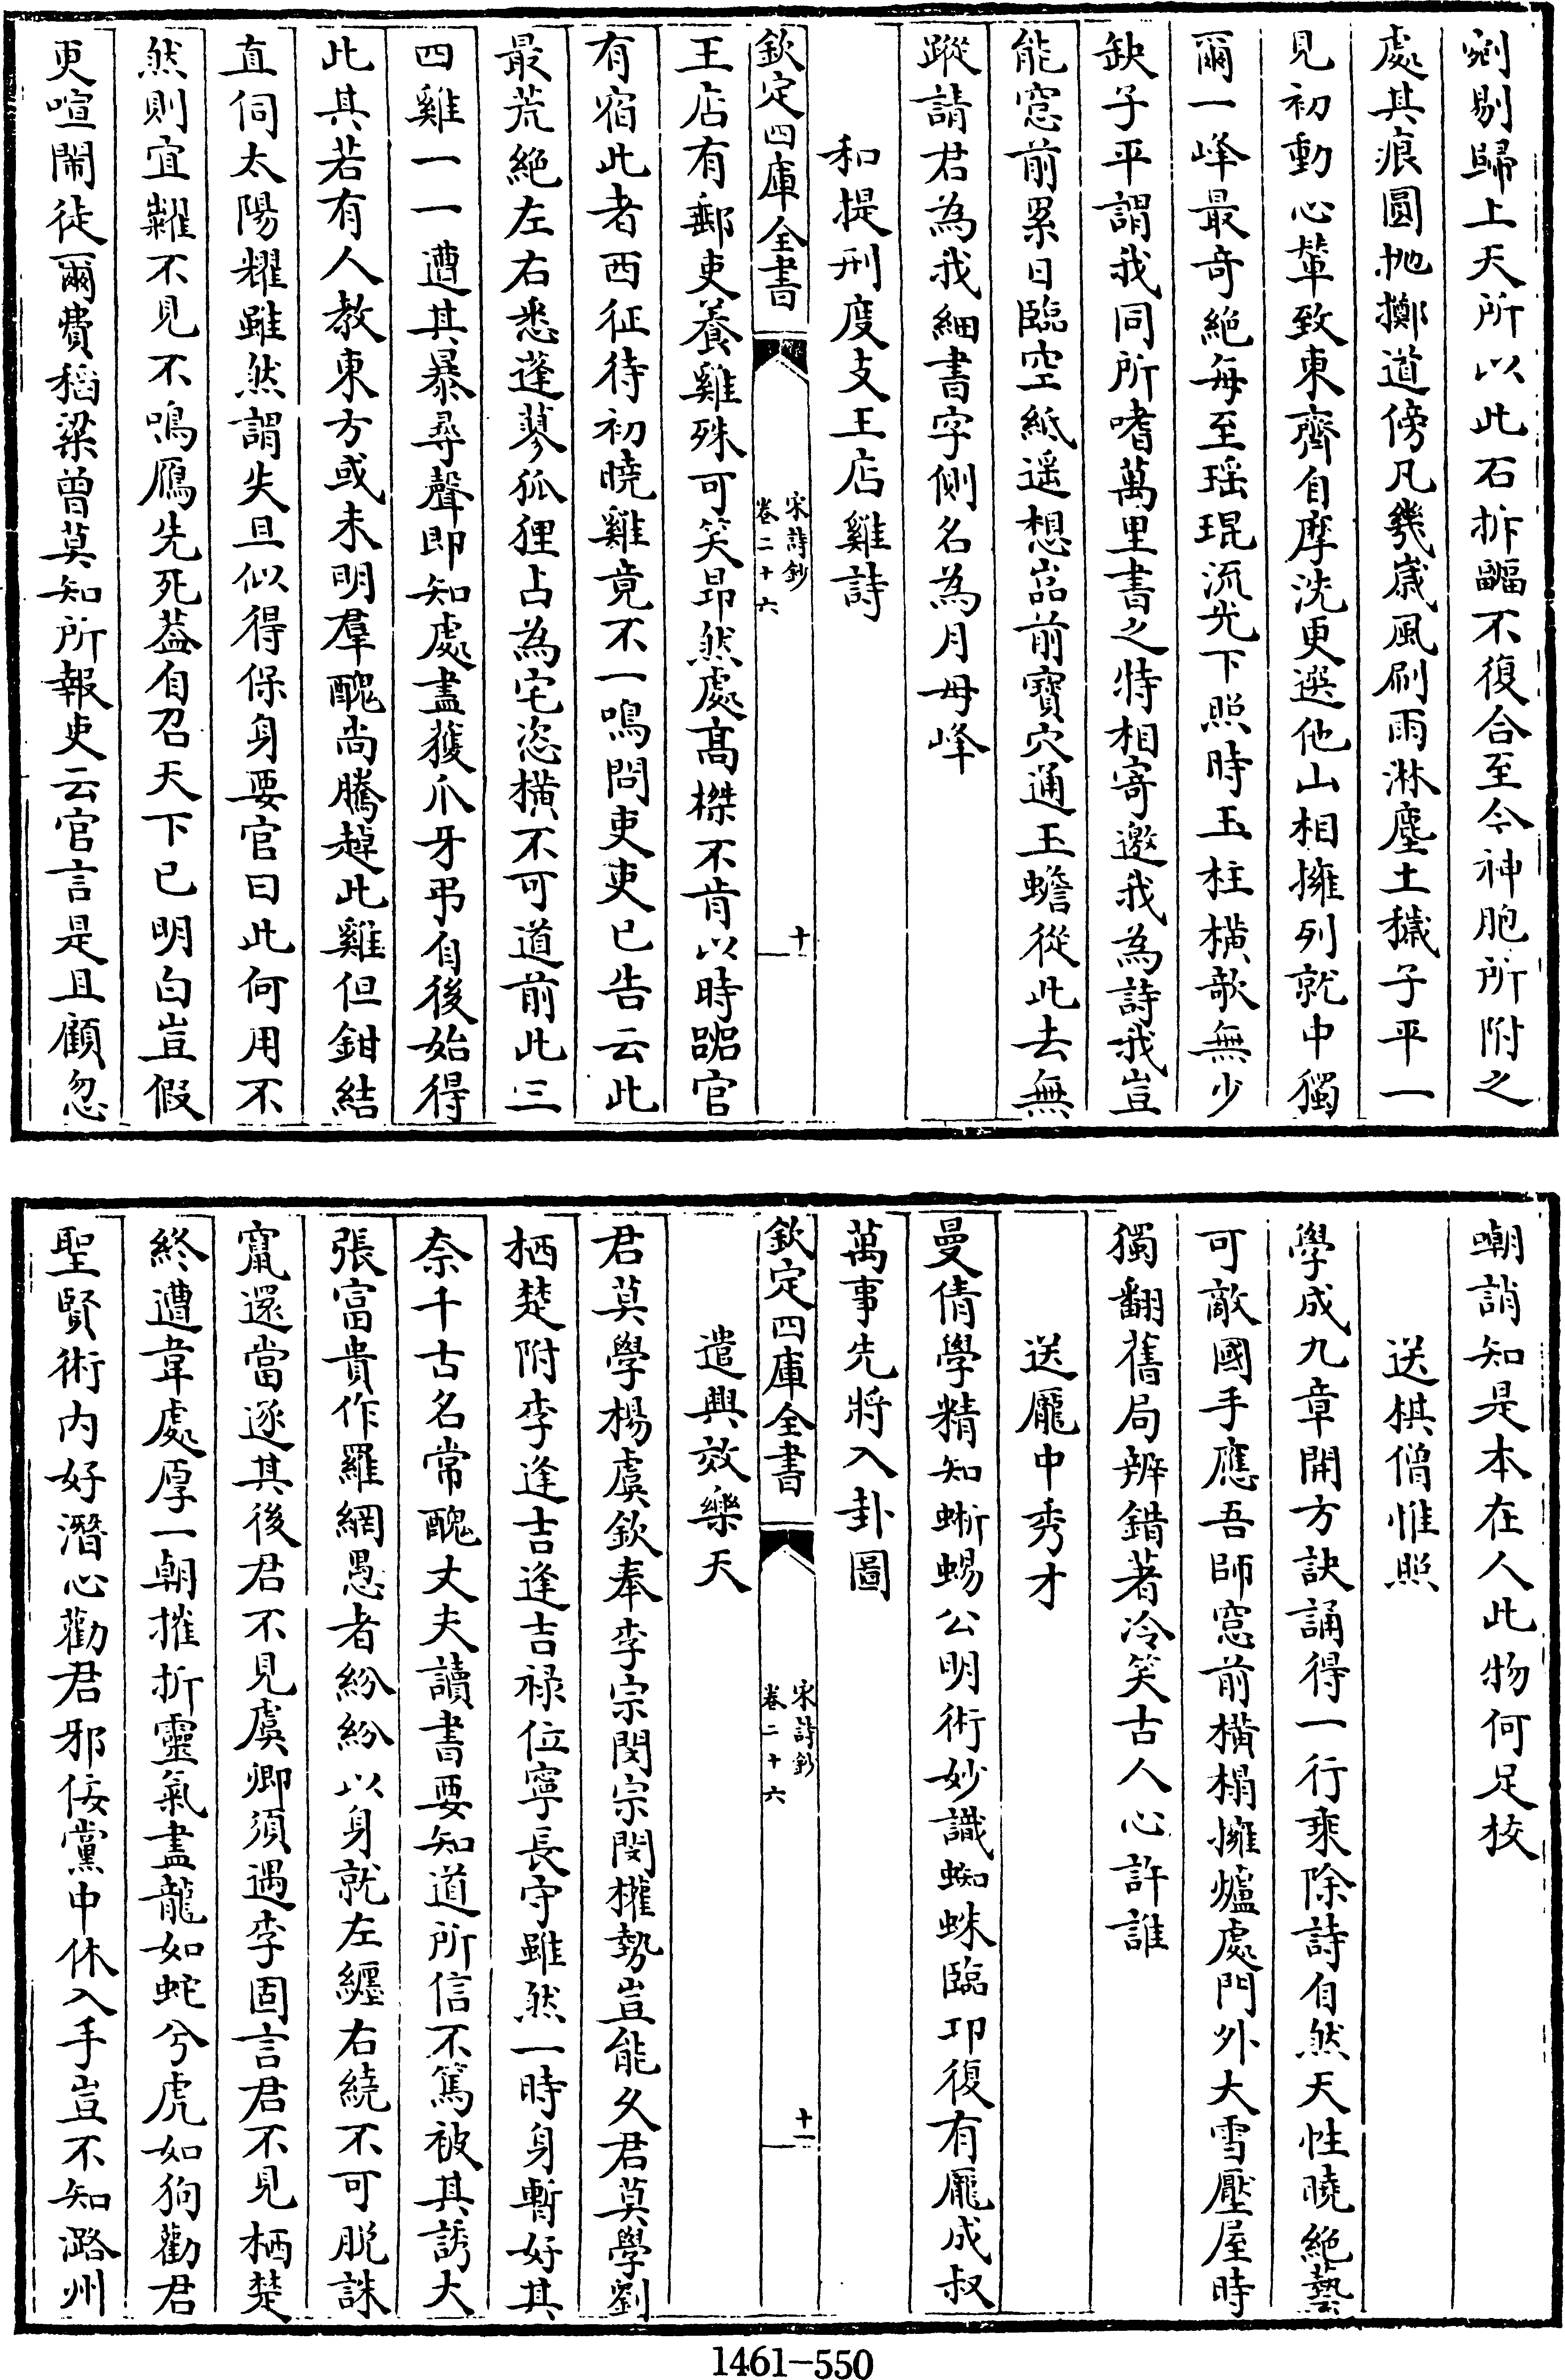 剜剔歸上天所以此石拆疈不復合至今神胞所附之
處其痕圓抛擲道傍凡幾歲風刷雨淋塵土穢子平一
見初動心輦致東齊自摩洗更選他山相擁列就中獨
爾一峰最奇絶每至瑶琨流光下照時玉柱横欹無少
缺子平謂我同所嗜萬里書之特相寄邀我為詩我豈
能窓前累日臨空紙遥想嵓前寶穴通玉蟾從此去無
蹤請君為我細書字側名為月母峰
和提刑度支王店雞詩
欽定四庫全書
宋詩鈔
卷二十六
十
王店有郵吏養雞殊可笑昂然處髙榤不肯以時㗊官
有宿此者西征待初曉雞竟不一鳴問吏吏已告云此
最荒絶左右悉蓬蓼狐狸占為宅恣横不可道前此三
四雞一一遭其暴尋聲即知處盡獲爪牙弔自後始得
此其若有人教東方或未明羣醜尚騰趠此雞但鉗結
直伺太陽耀雖然謂失旦似得保身要官曰此何用不
然則宜糶不見不鳴鴈先死葢自召天下已明白豈假
更喧鬧徒爾費稻粱曽莫知所報吏云官言是且顧忽
嘲誚知是本在人此物何足校
送棋僧惟照
學成九章開方訣誦得一行乗除詩自然天性曉絶藝
可敵國手應吾師窓前横榻擁爐處門外大雪壓屋時
獨翻舊局辨錯著冷笑古人心許誰
送龎中秀才
曼倩學精知蜥蜴公明術妙識蜘蛛臨邛復有龎成叔
萬事先將入卦圖
欽定四庫全書
宋詩鈔
卷二十六
十一
遣興效樂天
君莫學楊虞欽奉李宗閔宗閔權勢豈能久君莫學劉
栖楚附李逢吉逢吉禄位寧長守雖然一時身暫好其
奈千古名常醜丈夫讀書要知道所信不篤被其誘大
張富貴作羅網愚者紛紛以身就左纒右繞不可脱誅
竄還當逐其後君不見虞卿須遇李固言君不見栖楚
終遭韋處厚一朝摧折靈氣盡龍如蛇兮虎如狗勸君
聖賢術内好潛心勸君邪佞黨中休入手豈不知潞州
1461-550